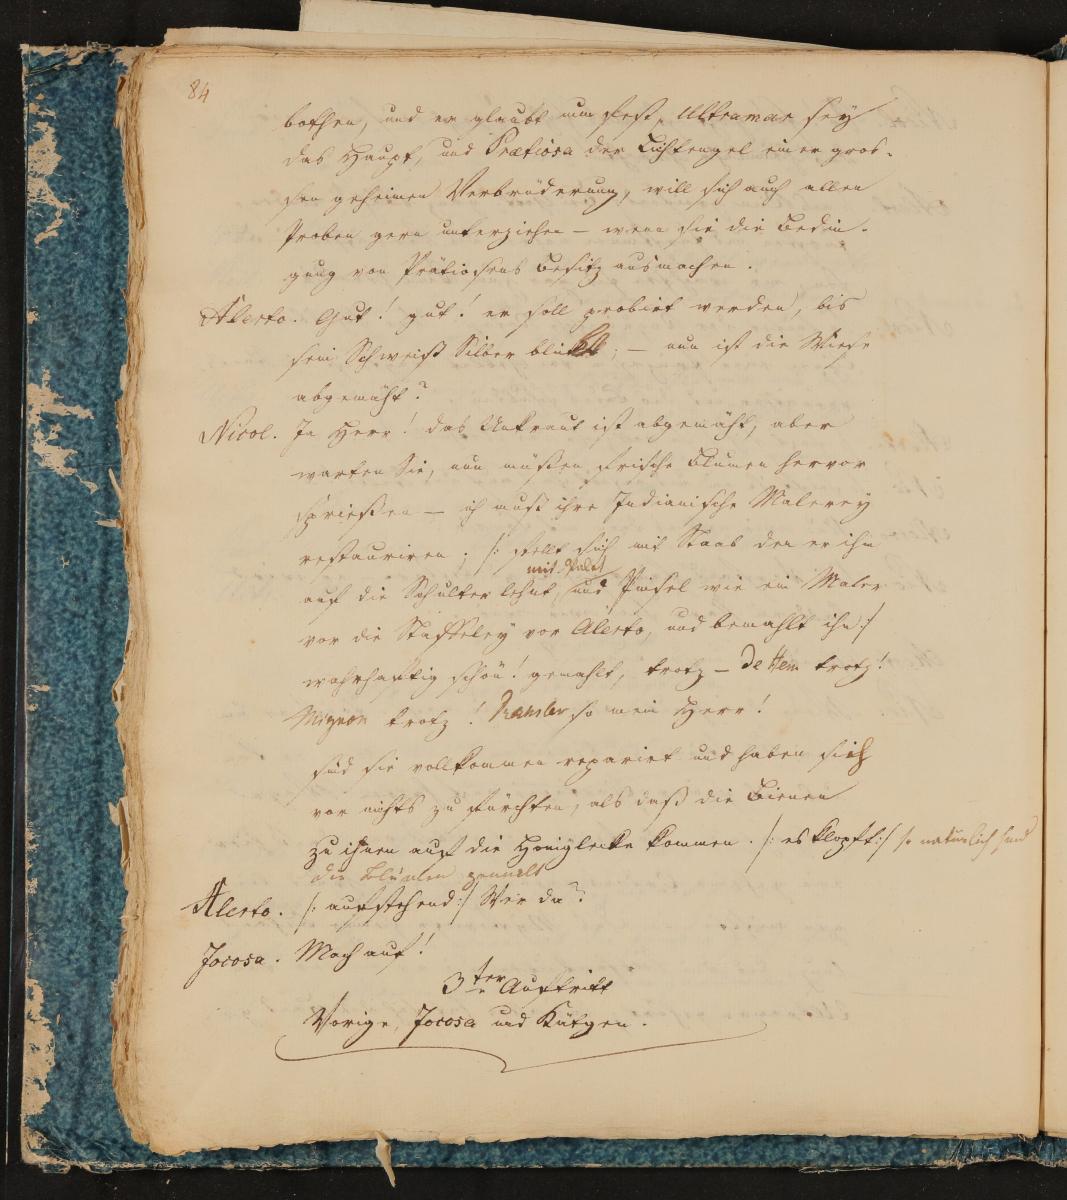 84
bothen, und er glaubt nun fest, Ultramar sey
das Haupt, und Prætiosa der Lichtengel einer gros-
sen geheimen Verbrüderung, will sich auch allen
Proben gern unterziehen – wenn sie die Bedin-
gung von Prätiosens Besitz ausmachen.
Alerto. Gut! gut! er soll probirt werden, bis
sein Schweiß Silber blickt; – nun ist die Wiese
abgemäht?
Nicol. Ja Herr! das Unkraut ist abgemäht, aber
warten Sie, nun müßen frische Blumen hervor
sprießen – ich muß ihre Indianische Malerey
restauriren. /: stellt sich mit Staab den er ihm
mit Palet
auf die Schulter lehnt, und Pinsel wie ein Maler
vor die Staffeley vor Alerto, und bemahlt ihn :/
wahrhaftig schön! gemahlt, trotz – De Hem trotz!
Mignon trotz! so mein Herr!
sind sie vollkommen reparirt und haben sich
vor nichts zu fürchten, als daß die Bienen
zu ihnen auf die Honiglecke kommen. /: es klopft :/ so natürlich sind
die Blumen gemalt
Alerto. /: aufstehend :/ Wer da?
Jocosa. Mach auf!
3ter Auftritt
Vorige, Jocosa und Kätgen.